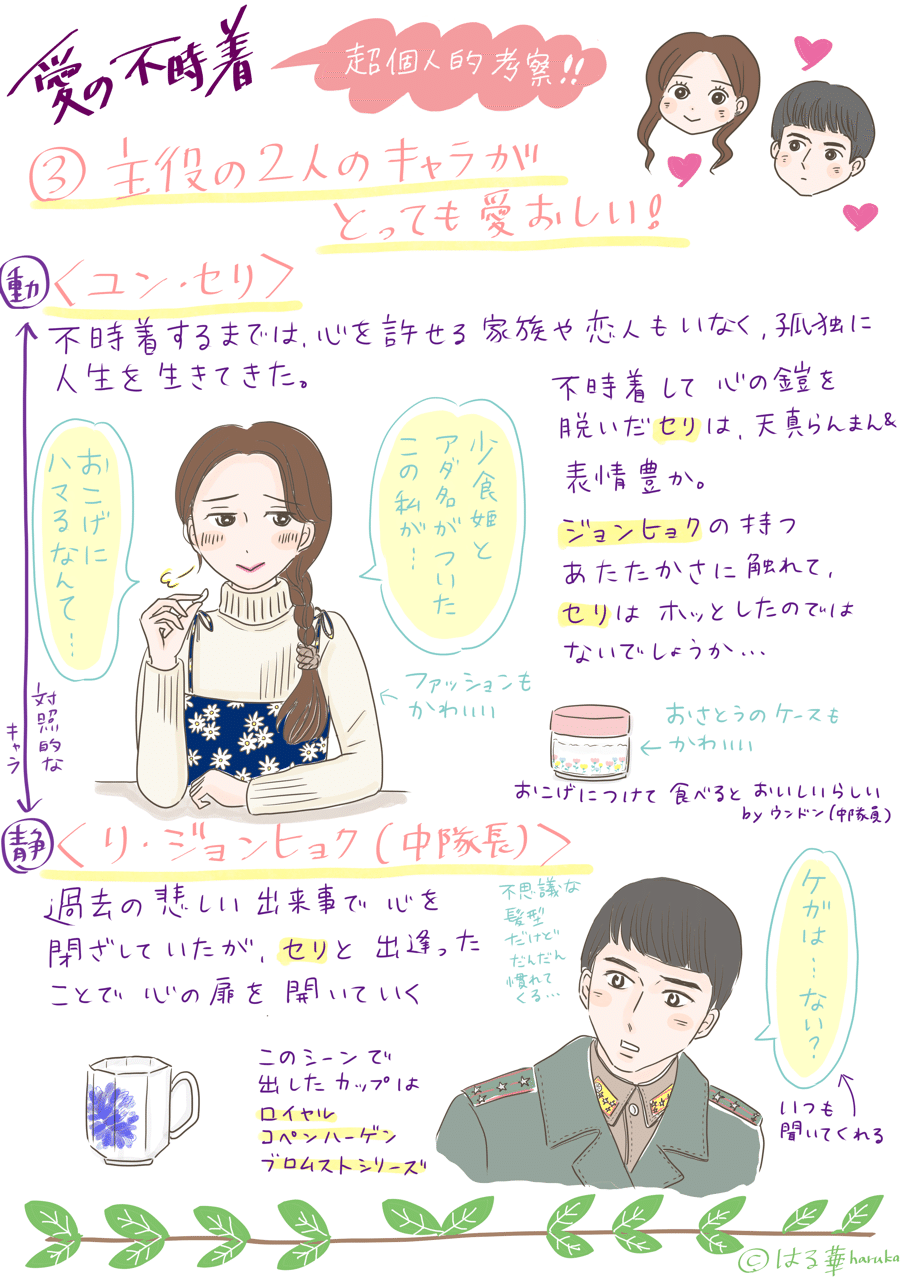 愛の不時着
超個人的考察!!
③ 主役の2人のキャラが
とっても愛おしい!
動 〈ユン・セリ〉
不時着するまでは、心を許せる家族や恋人もいなく、孤独に
人生を生きてきた。
不時着して心の鎧を
脱いだセリは、天真らんまん&
表情豊か。
ジョンヒョクの持つ
あたたかさに触れて、
セリはホッとしたのでは
ないでしょうか…
少食姫と
アダ名がついた
この私が…
おこげに
ハマるなんて…
ファッションも
かわいい
おさとうのケースも
かわいい
おこげにつけて食べるとおいしいらしい
by ウンドン(中隊員)
対照的な
キャラ
静 〈リ・ジョンヒョク(中隊長)〉
過去の悲しい出来事で心を
閉ざしていたが、セリと出逢った
ことで心の扉を開いていく
不思議な
髪型
だけど
だんだん
慣れて
くる…
ケガは…ない?
いつも
聞いてくれる
このシーンで
出したカップは
ロイヤル
コペンハーゲン
ブロムストシリーズ
©はる華 haruka